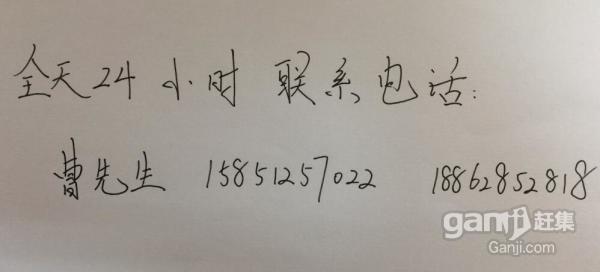 全天24小时 联系电话:
曹先生 15851257022 18862852818
ganji 赶集
Ganji.com